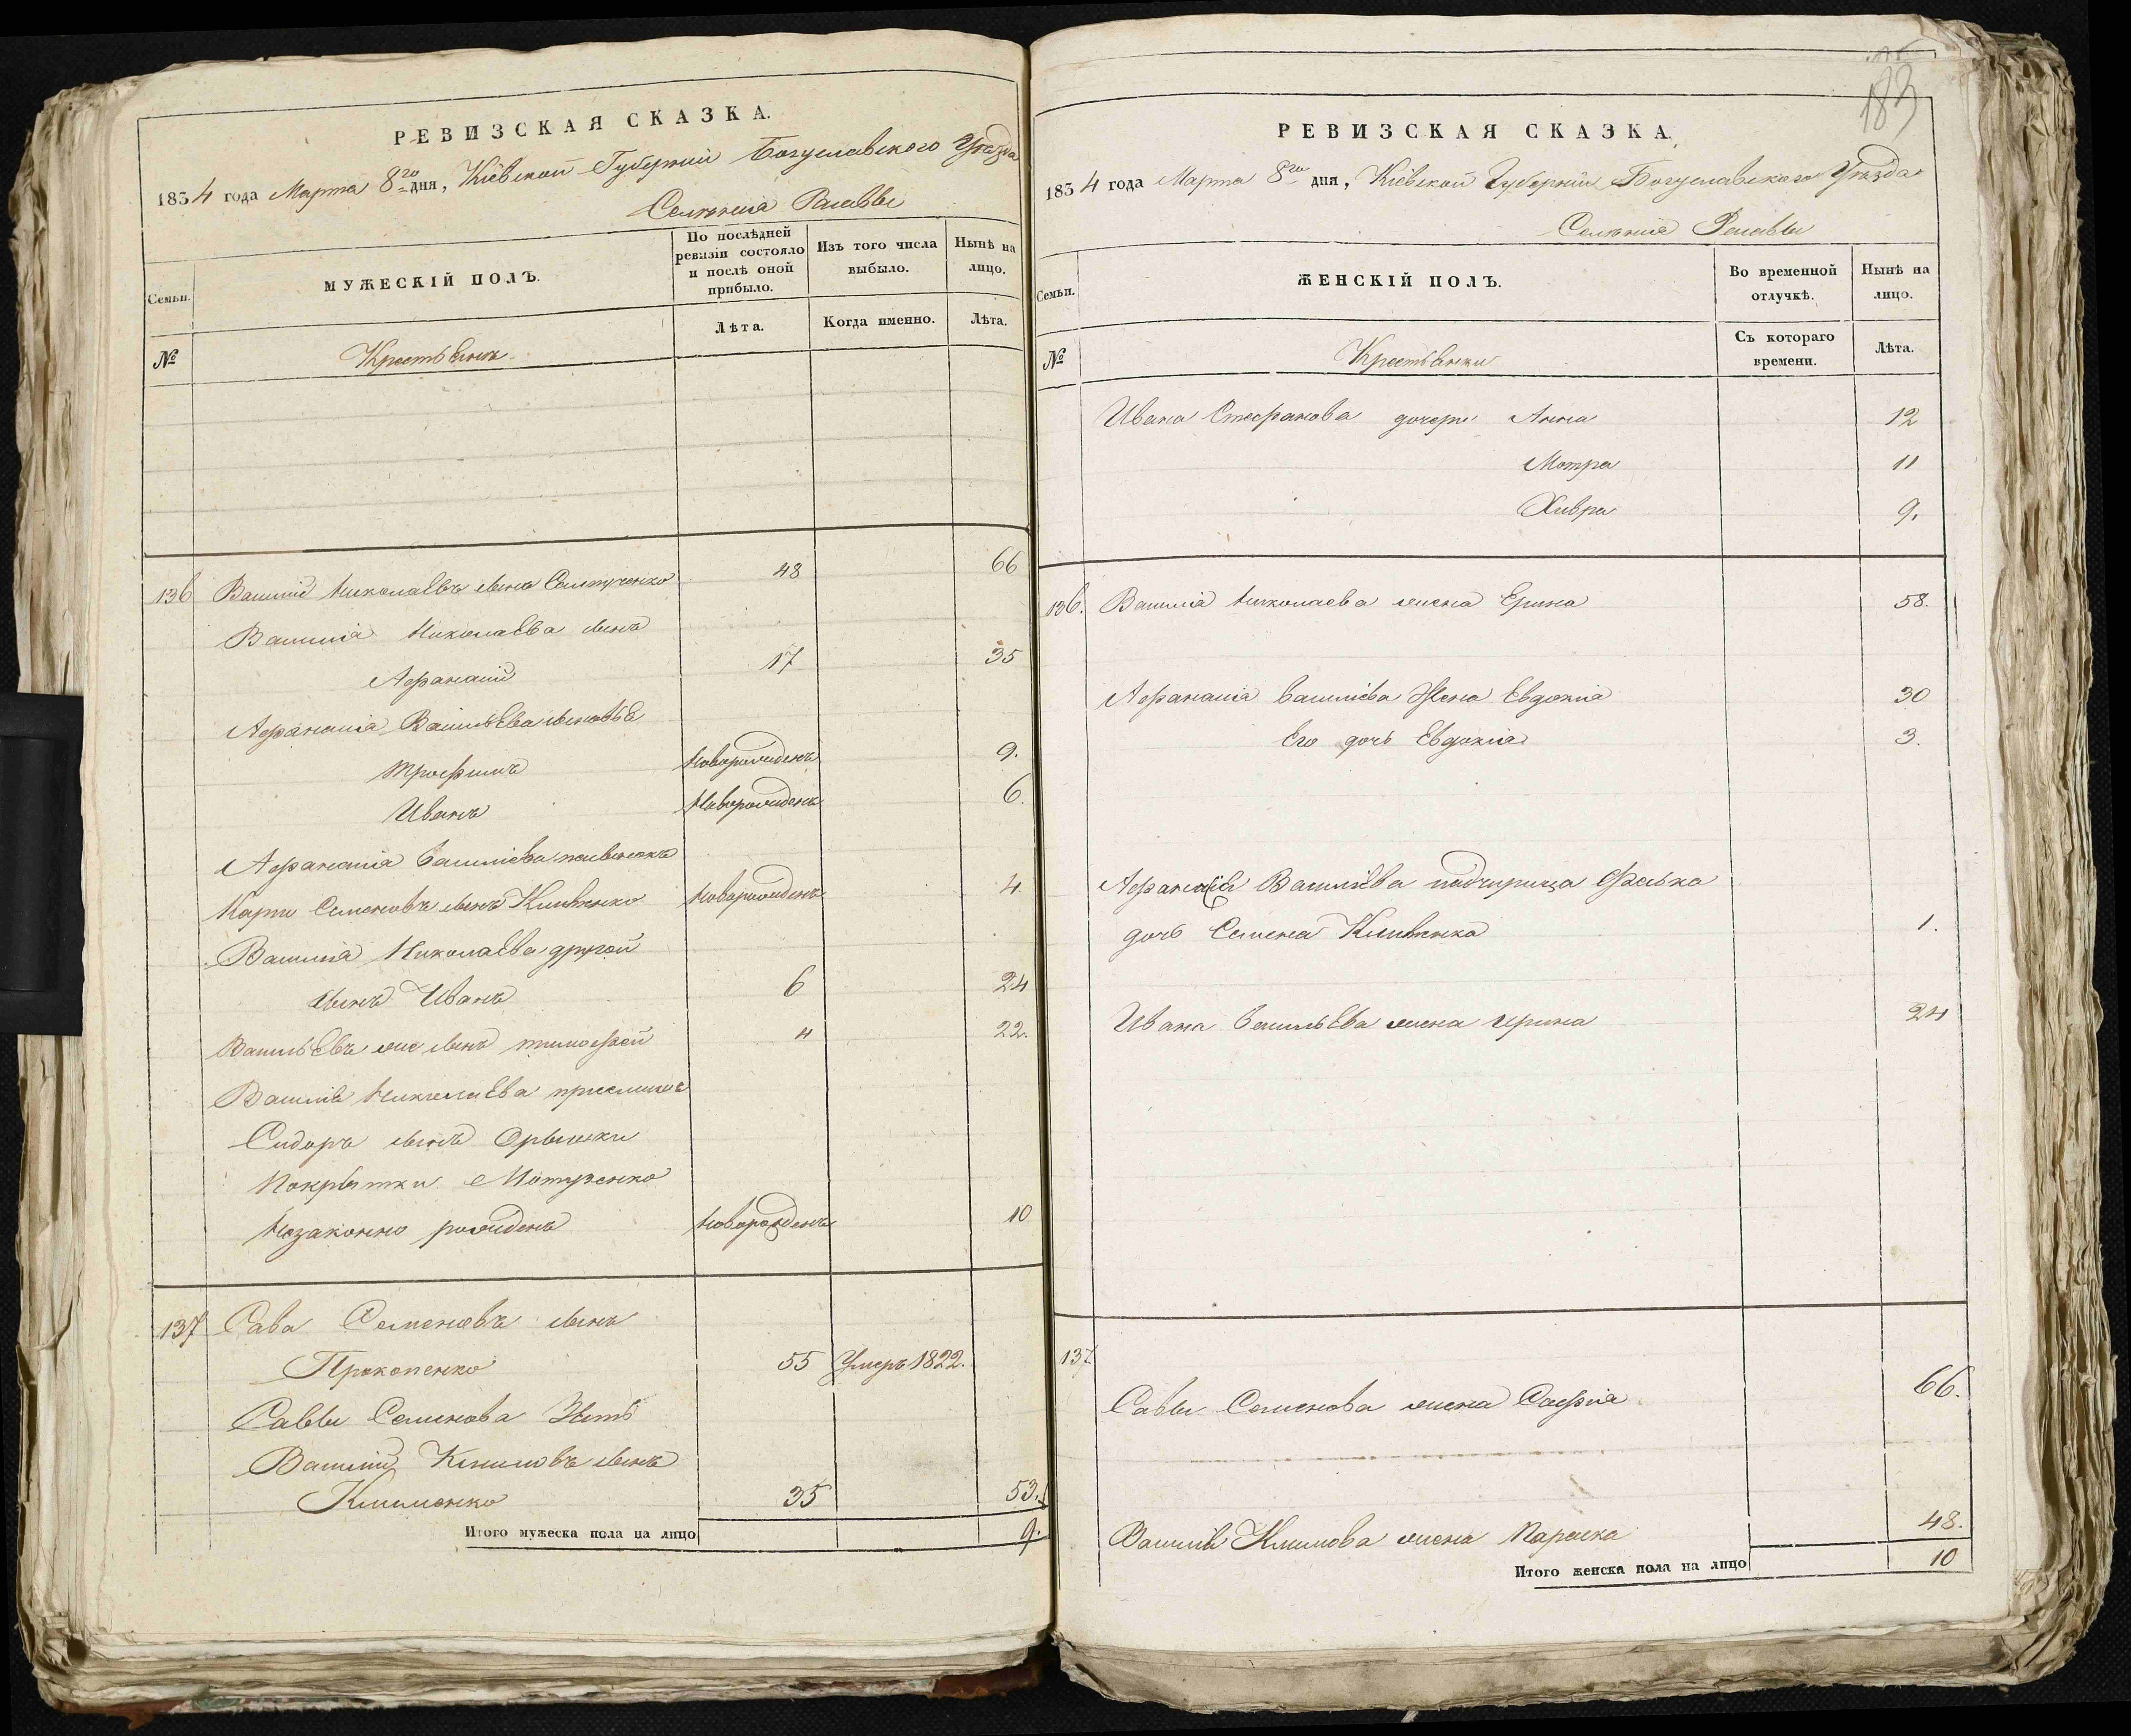 РЕВИЗСКАЯ СКАЗКА.
1834 года Марта 8го дня, Кіевской Губерніи Богуславского Уезда
Селенія Расавы
Семьи.
МУЖЕСКІЙ ПОЛЪ.
По послѣдней ревизіи состояло и послѣ оной прибыло.
Изъ того числа выбыло.
Нынѣ на лицо.
Лѣта.
Когда именно.
Лѣта.
№
Крестьянъ
136 Василій Николаевъ сынъ 48 66
Василія Николаева сынъ
Афанасій 17 35
Афанасія Васильева сыновье
Трофимъ Новорожденъ 9.
Иванъ Новорожденъ 6.
Афанасія Василіева
Карпъ Семеновъ сынъ Новорожденъ 4.
Василія Николаева другой
сынъ Иванъ 6 24
Васильевъ же сынъ Тимофей 4 22.
Василія Николаева пріемышъ
Сидоръ сынъ Орышки
Покрытки Мотузенко
Незаконно рожденъ Новорожденъ 10
137 Сава Семеновъ сынъ
Прокопенко 55 Умеръ 1822.
Саввы Семенова Зять
Василій Климовъ сынъ
Клименко 35 53.
Итого мужеска пола на лицо 9.
183
РЕВИЗСКАЯ СКАЗКА,
1834 года Марта 8го дня, Кіевской Губерніи Богуславского Уезда
Селенія Расавы
Семьи.
ЖЕНСКІЙ ПОЛЪ.
Во временной отлучкѣ.
Нынѣ на лицо.
Съ котораго времени.
Лѣта.
№
Крестьянки
Ивана Стефанова дочери Анна 12
Мотра 11
Хивря 9.
136. Василія Николаева жена Ерина 58.
Афанасія Василіева Жена Евдокія 30
Его дочь Евдокія 3.
Афанасія Василіева падчирица Феська
дочь Семена 1.
Ивана Васильева жена Ирина 24
137.
Саввы Семенова жена Софія 66.
Василія Климова жена Параска 48.
Итого женска пола на лицо 10